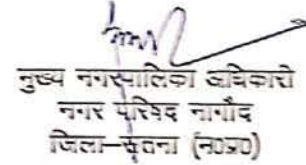 मुख्य नगरपालिका अधिकारी
नगर परिषद नागौद
जिला–सतना (म०प्र०)